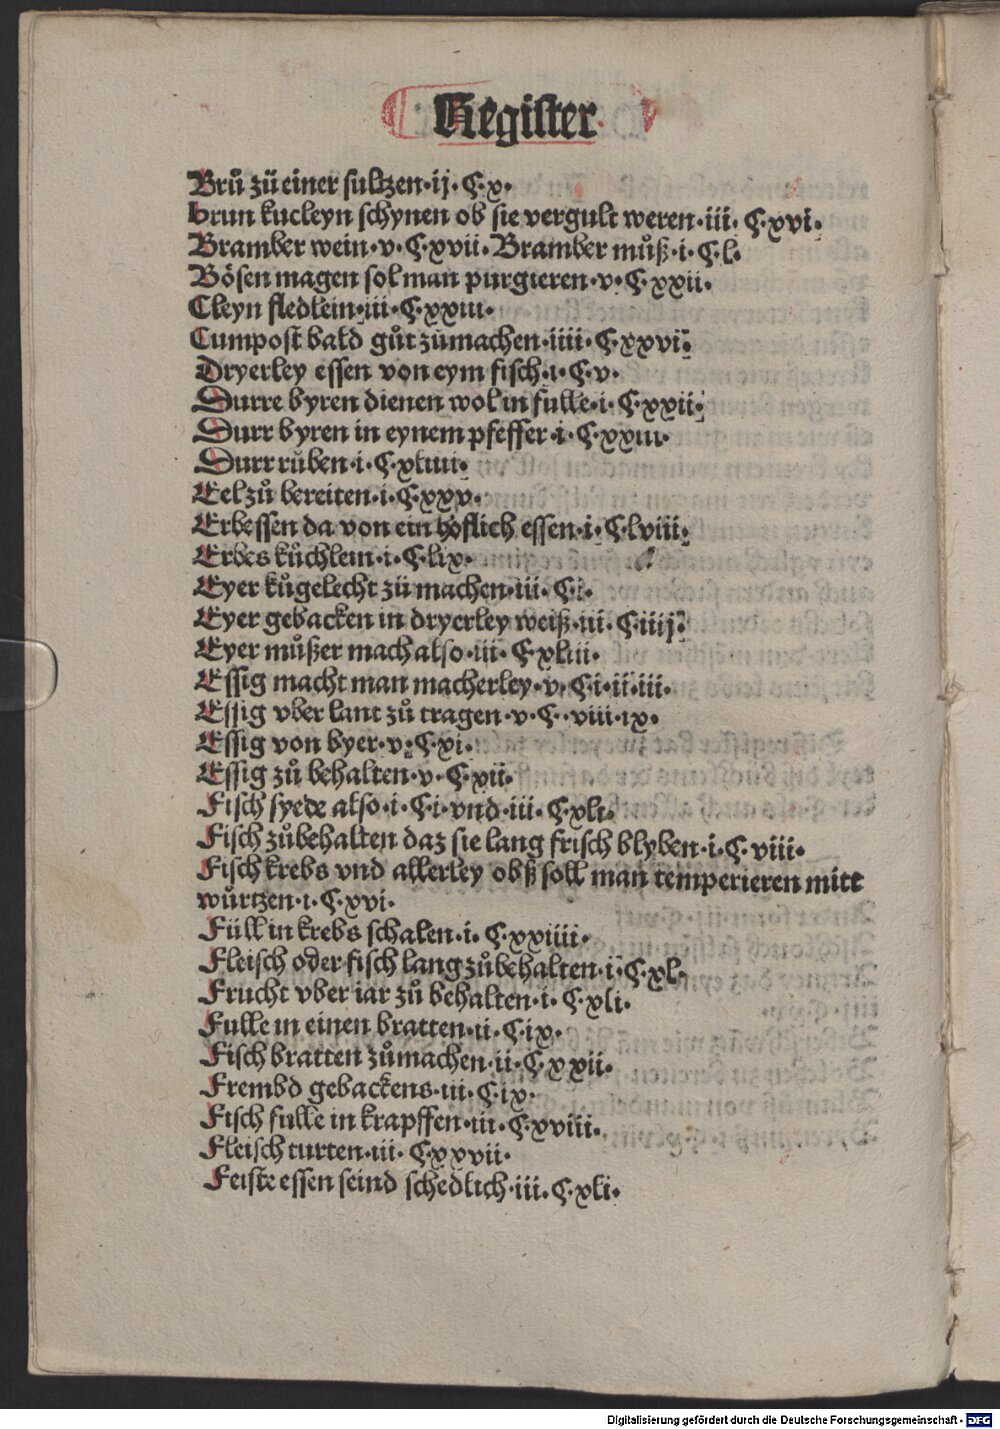 Register
Brů zů einer sultzen·ij·C·x·
brun kucleyn schynen ob sie vergult weren·iii·C·xvi·
Bramber wein·v·C·xvii·Bramber můß·i·C·l·
Bösen magen sol man purgieren·v·C·xxii·
Cleyn fledlein·iii·C·xxiii·
Cumpost bald gůt zůmachen·iiii·C·xxvi·
Dryerley essen von eym fisch·i·C·v·
Durre byren dienen wol in fulle·i·C·xxii·
Durr byren in eynem pfeffer·i·C·xxiii·
Durr růben·i·C·xliiii·
Eel zů bereiten·i·C·xxv·
Erbessen da von ein höflich essen·i·C·lviii·
Erbes kůchlein·i·C·lix·
Eyer kůgelecht zů machen·iii·C·i·
Eyer gebacken in dryerley weiß·iii·C·iiij·
Eyer můßer mach also·iii·C·xliii·
Essig macht man macherley·v·C·i·ii·iii·
Essig vber lant zů tragen·v·C·viii·ix·
Essig von byer·v·C·xi·
Essig zů behalten·v·C·xii·
Fisch syede also·i·C·i·vnd·iii·C·xli·
Fisch zůbehalten daz sie lang frisch blyben·i·C·viii·
Fisch krebs vnd allerley obß soll man temperieren mitt
wůrtzen·i·C·xvi·
Füll in krebs schalen·i·C·xxiiii·
Fleisch oder fisch lang zůbehalten·i·C·xl·
Frucht vber iar zů behalten·i·C·xli·
Fulle in einen bratten·ii·C·ix·
Fisch bratten zůmachen·ii·C·xxii·
Frembd gebackens·iii·C·ix·
Fisch fulle in krapffen·iii·C·xviii·
Fleisch turten·iii·C·xxvii·
Feiste essen seind schedlich·iii·C·xli·
Digitalisierung gefördert durch die Deutsche Forschungsgemeinschaft - DFG